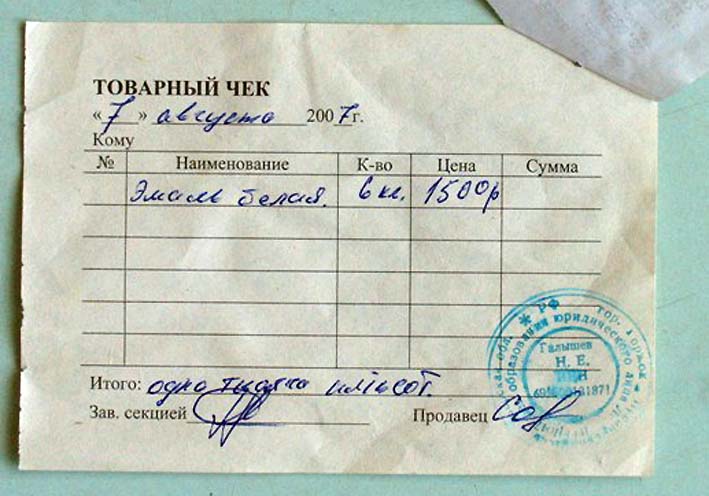 ТОВАРНЫЙ ЧЕК
« 7 » августа 2007г.
Кому
№ Наименование К-во Цена Сумма
Эмаль белая. 6 кг. 1500р
Итого: одна тысяча пятьсот.
Зав. секцией Продавец
РФ гор. Торжок
образования юридического лица
Галышев
Н. Е.
ИНН